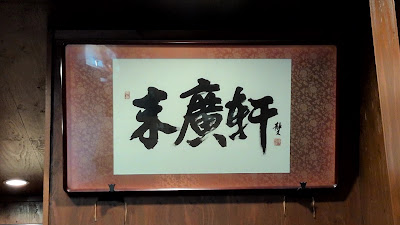 末廣軒